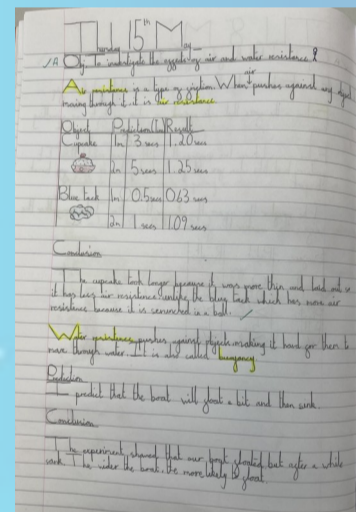 Thursday 15th May
Obj: To investigate the effects of air and water resistance.
Air resistance is a type of friction. When air pushes against any object
moving through it. It is air resistance.
Object Prediction (In) Result
Cupcake 1m 3 secs 1.20 secs
2m 5 secs 1.25 secs
Blue tack 1m 0.5 secs 0.63 secs
2m 1 secs 1.09 secs
Conclusion
The cupcake took longer because it was more thin and laid out so
it has less air resistance unlike the blue tack which has more air
resistance because it is scrunched in a ball.
Water resistance pushes against objects making it hard for them to
move through water. It is also called buoyancy.
Prediction
I predict that the boat will float a bit and then sink.
Conclusion
The experiment showed that our boat floated but after a while
sank. The wider the boat, the more likely to float.